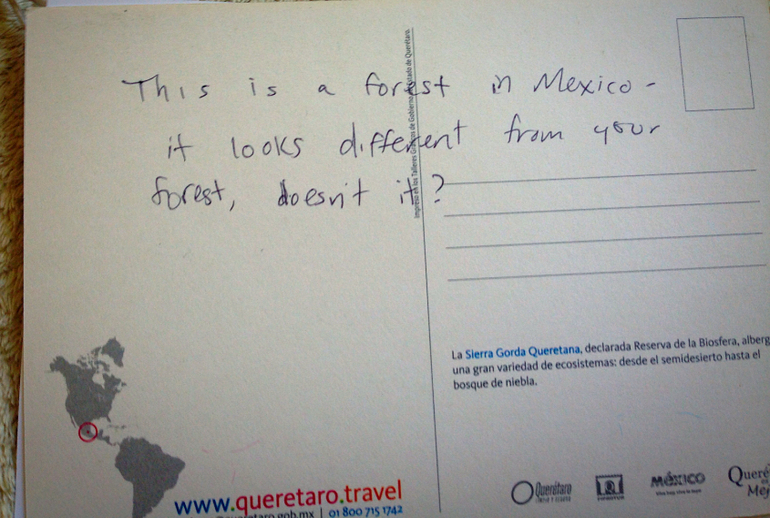 This is a forest in Mexico -
it looks different from your
forest, doesn't it?
Impreso en los Talleres Gráficos de Gobierno del Estado de Querétaro.
La Sierra Gorda Queretana, declarada Reserva de la Biosfera, alberg
una gran variedad de ecosistemas: desde el semidesierto hasta el
bosque de niebla.
www.queretaro.travel
queretaro.gob.mx | 01 800 715 1742
Querétaro
MÉXICO
Queré
Me